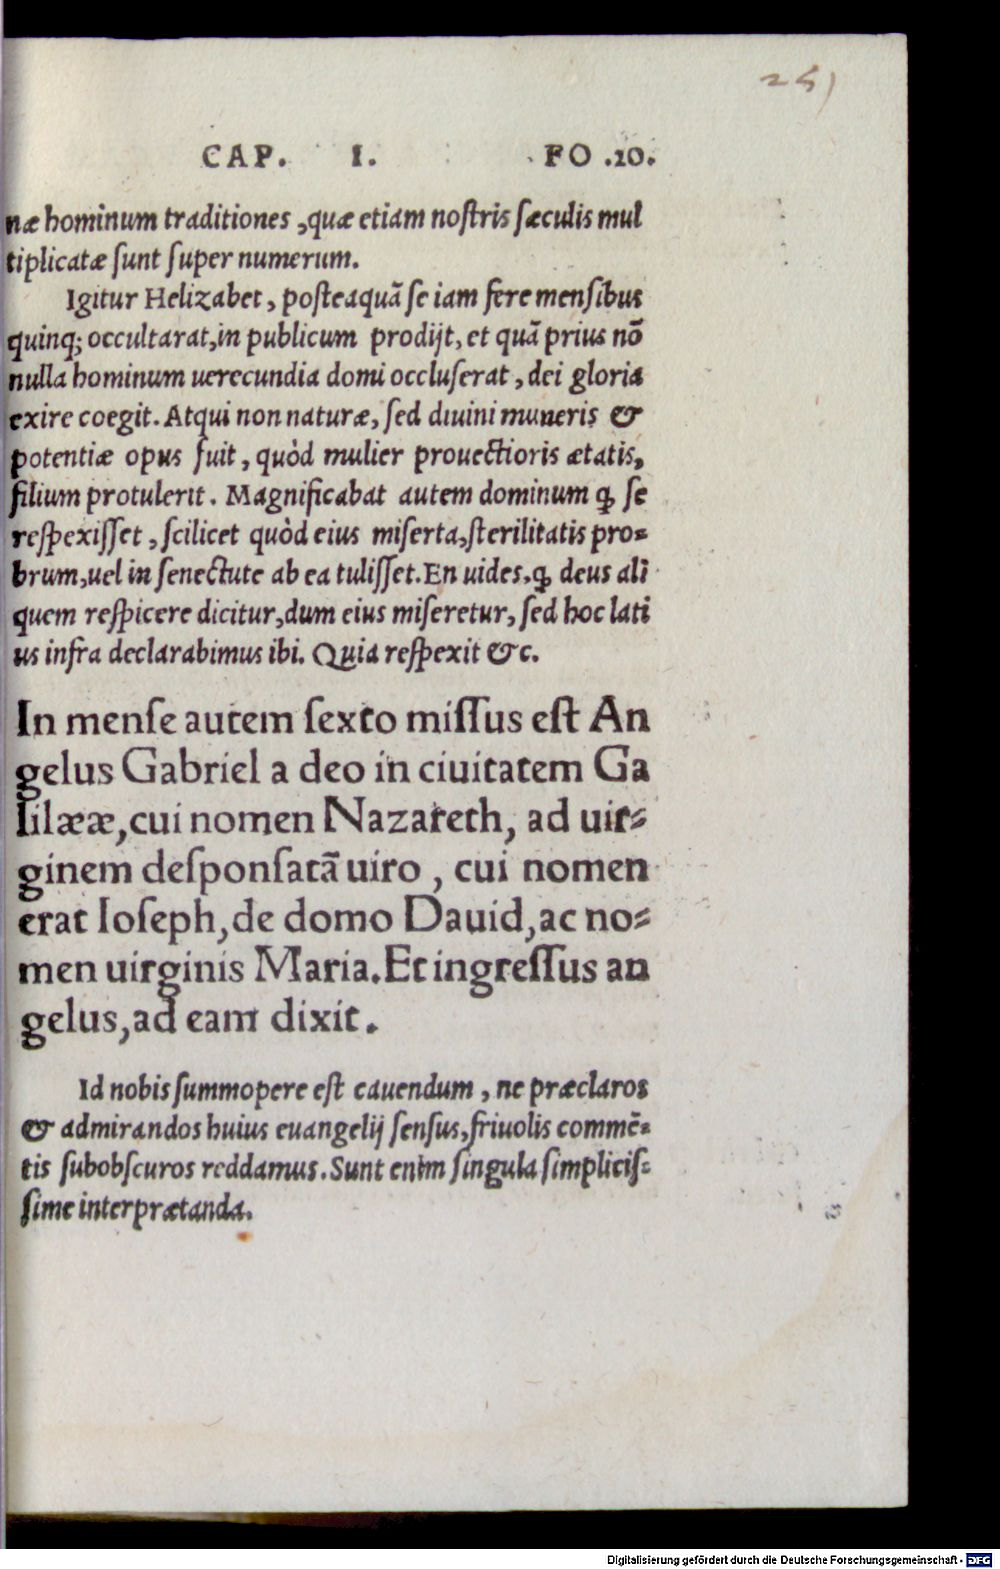 251
CAP. I. FO .10.
næ hominum traditiones , quæ etiam noſtris ſæculis mul
tiplicatæ ſunt ſuper numerum.
Igitur Helizabet , poſteaquã ſe iam fere menſibus
quinq; occultarat, in publicum prodijt, et quã prius nõ
nulla hominum uerecundia domi occluſerat , dei gloria
exire coegit. Atqui non naturæ, ſed diuini muneris &
potentiæ opus fuit , quòd mulier prouectioris ætatis,
filium protulerit . Magnificabat autem dominum ꝙ ſe
reſpexiſſet , ſcilicet quòd eius miſerta, ſterilitatis pro=
brum, uel in ſenectute ab ea tuliſſet. En uides, ꝙ deus ali
quem reſpicere dicitur, dum eius miſeretur, ſed hoc lati
us infra declarabimus ibi. Quia reſpexit &c.
In menſe autem ſexto miſſus eſt An
gelus Gabriel a deo in ciuitatem Ga
lilææ, cui nomen Nazareth, ad uir=
ginem deſponſatã uiro , cui nomen
erat Ioſeph, de domo Dauid, ac no=
men uirginis Maria. Et ingreſſus an
gelus, ad eam dixit .
Id nobis ſummopere eſt cauendum , ne præclaros
& admirandos huius euangelij ſenſus, friuolis commẽ=
tis ſubobſcuros reddamus. Sunt enim ſingula ſimpliciſ=
ſime interprætanda.
Digitalisierung gefördert durch die Deutsche Forschungsgemeinschaft - DFG